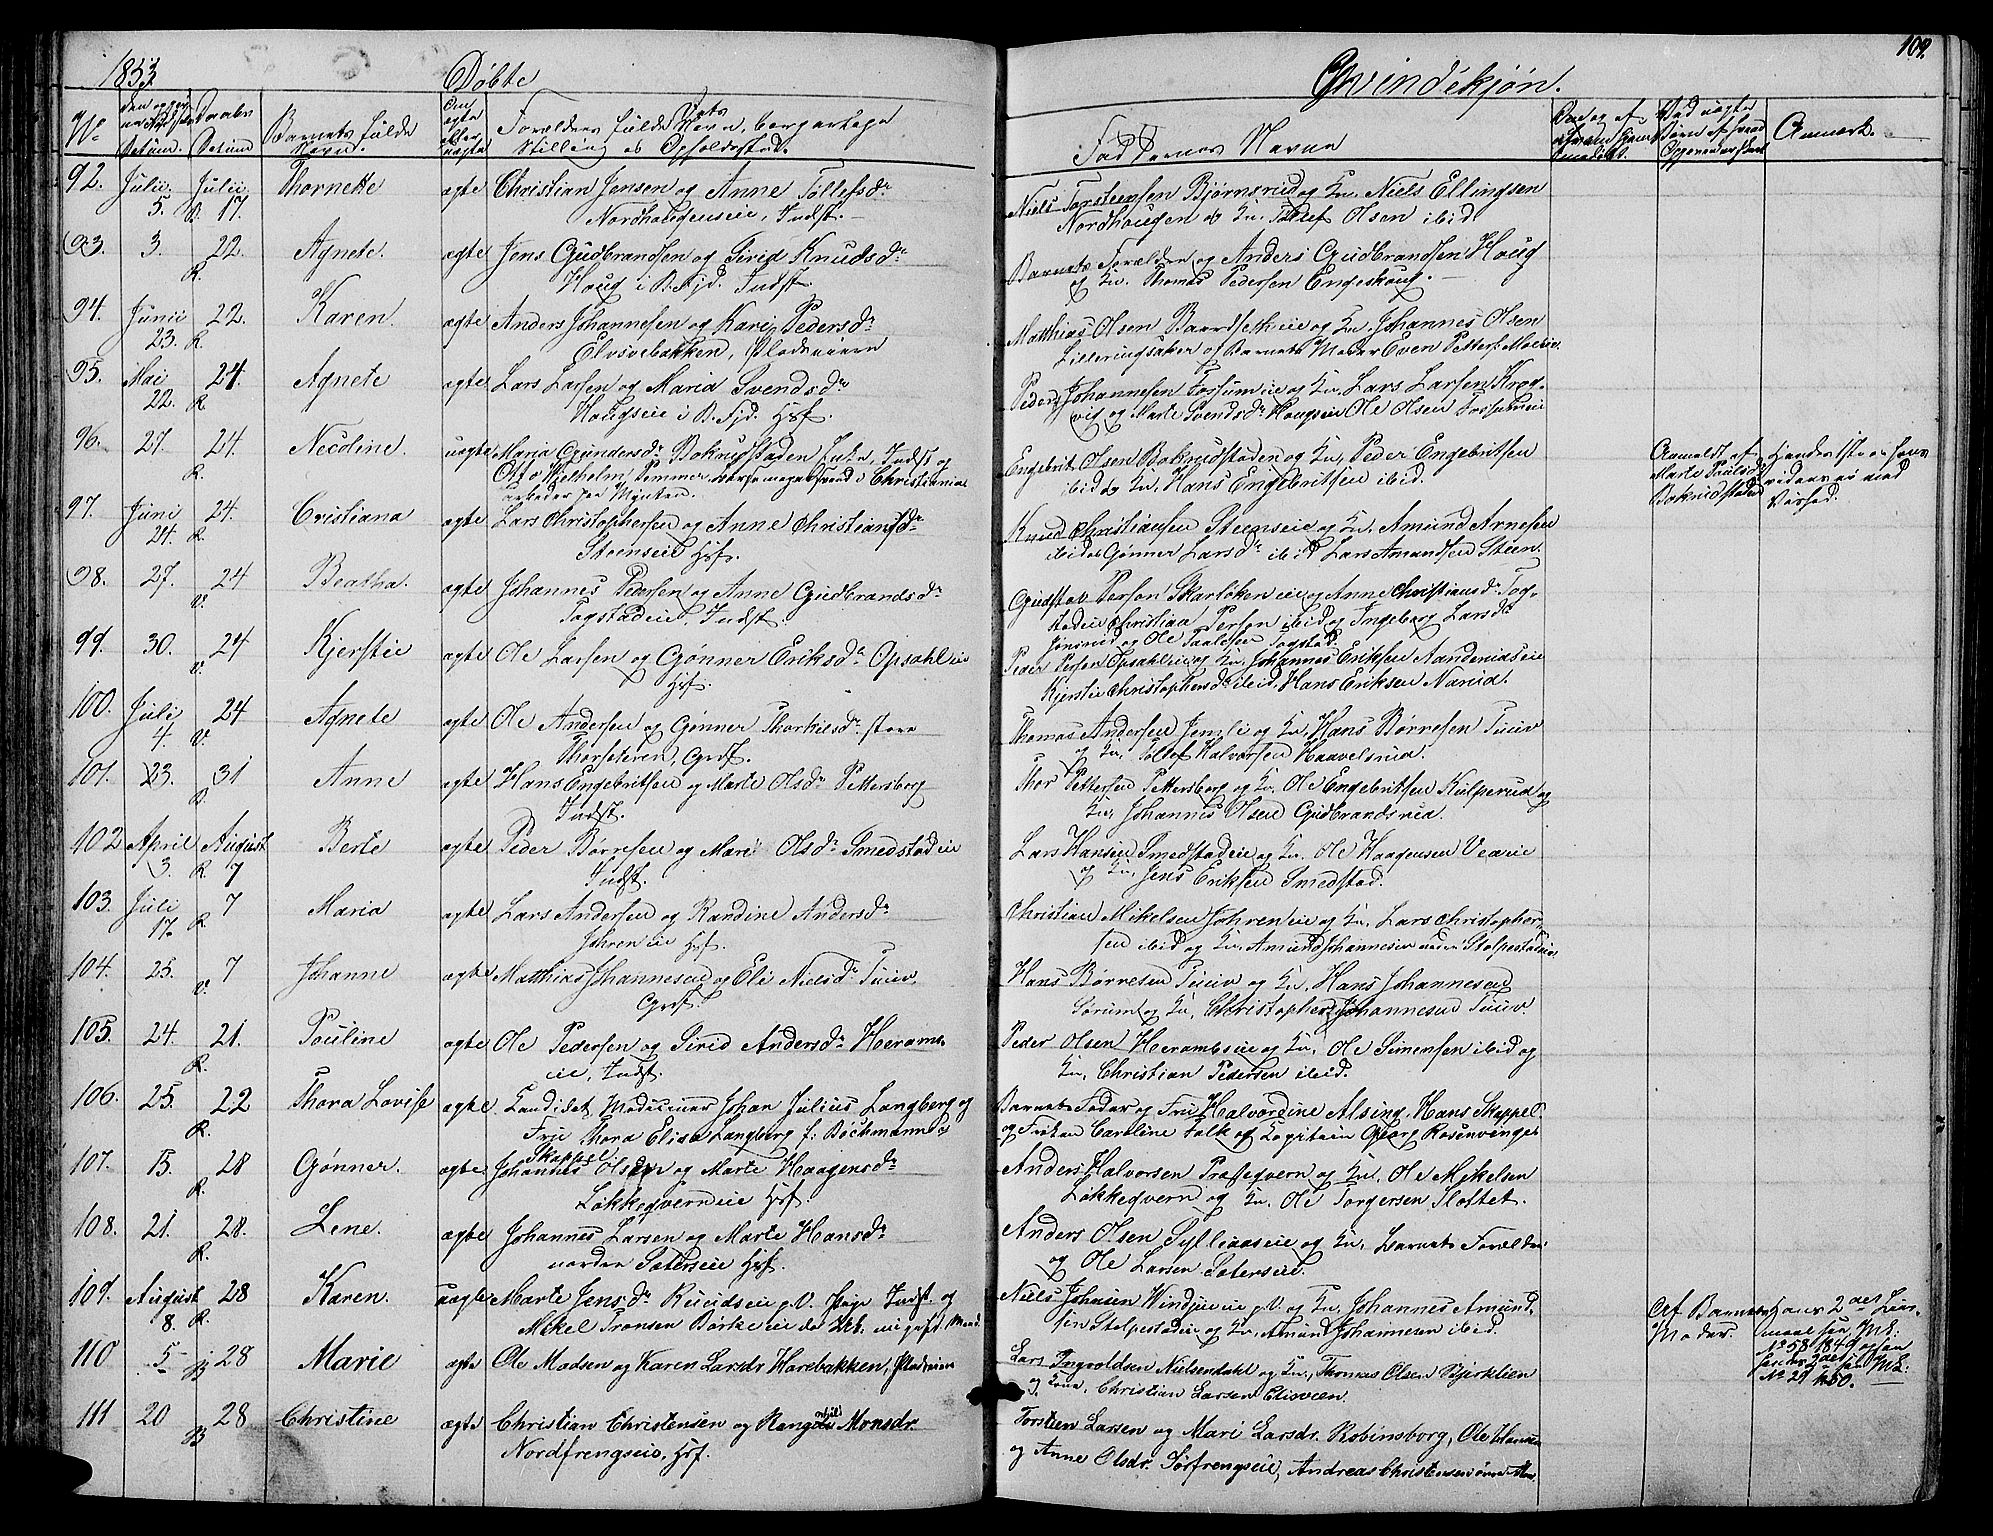 1853.
Døbte
Qvindekjøn.
109.
No
Barnets fulde Navn.
Forældres fulde Navn, borgerlige Stilling og Opholdssted.
Faddernes Navne
Anmærk.
92. Julii 5. Julii 17. Thornette ægte Christian Jensen og Anne Tollefsdr
Nordhougenseie, Indst.
Niels Torsteensen Bjørnsrud og Kn. Niels Ellingsen
Nordhougen og Kn. Tollef Olsen ibid
93. 3. 22. R. Agnete. ægte Jens Gudbrandsen og Sirid Knudsdr
Houg i B. Fjd. Indst.
Barnets Forældre og Anders Gudbrandsen Houg
og Kn. Thomas Pedersen Engeskoug.
94. Junii 23. 22. R. Karen. ægte Anders Johannesen og Kari Pedersdr
Elvsvebakken, Pladseieren
Matthias Olsen Baardsetheie og Kn. Johannes Olsen
Lilleringsaker og Barnets Moder Even Petters. Moeiie.
95. Mai 22. 24. R. Agnete ægte Lars Larsen og Maria Svendsdr
Hougseie i B. Fjd. Hsf.
Peder Johannesen Forsumeie og Kn. Lars Larsen Krog-
vig og Marte Svendsdr Hougseie Ole Olsen Forsumeie
96. 27. 24. R. Nicoline. uægte Maria Gundersdr Bokrudstaden Enke, Indst og
Otto Wilhelm Pommer, Svend i Christiania
arbeder paa Mynten.
Engebrit Olsen Bokrudstaden og Kn. Peder Engebritsen
ibid og Kn. Hans Engebritsen ibid.
Anmeldt af
Marte Paulsdr
Bokrudstaden
97. Juni 24. 24. R. Cristiana ægte Lars Christophersen og Anne Christiansdr
Steenseie Hsf.
Knud Christiansen Steenseie og Kn. Amund Arnesen
ibid og Gønner Larsdr ibid Lars Amundsen Steen.
98. 27. 24 V. Beatha. ægte Johannes Pedersen og Anne Gudbrandsdr
Togstadeie, Indst.
Gudstav Persen Skarløkeneie og Anne Christiansdr Tog-
stadeie Christian Persen ibid og Ingeborg Larsdr
Jonsrud og Ole Paalsen Togstad.
99. 30. 24 V. Kjerstie ægte Ole Larsen og Gønner Eriksdr Opsahleie
Hsf.
Peder Persen Opsahleie og Kn. Johannes Eriksen
Kjerstie Christophersdr ibid. Hans Eriksen Narud.
100. Juli 4. 24 V. Agnete ægte Ole Andersen og Gønner Thorkilsdr store
Thorseteren, Grdf.
Thomas Andersen Jemli og Kn. Hans Børresen Tuuv
og Kn. Tollef Halvorsen Haavelsrud.
101. 23. 31 Anne ægte Hans Engebritsen og Marte Olsdr Pettersborg
Indst.
Thor Pettersen Pettersborg og Kn. Ole Engebritsen Kulperud og
Kn. Johannes Olsen Gudbrandsrud.
102 April 3. August 7 R. Berte ægte Peder Børresen og Mari Olsdr Smedstadeie
Indst.
Lars Hansen Smedstadeie og Kn. Ole Haagensen Veaeie
og Kn. Jens Eriksen Smedstad.
103. Juli 17. 7 R. Maria ægte Lars Andersen og Randine Andersdr
Johreneie Hsf.
Christian Mikelsen Johreneie og Kn. Lars Christopher-
sen ibid og Kn. Amund Johannesen Stolpestadeie
104. 25. 7 V. Johanne ægte Matthias Johannesen og Eli Nielsdr Tuuv,
Grdf.
Hans Børresen Tuuv og Kn. Hans Johannesen
Sørum og Kn. Christopher Johannesen Tuuv.
105. 24. 21. R. Pouline ægte Ole Pedersen og Sirid Andersdr Herams-
eie, Indst.
Peder Olsen Herambseie og Kn. Ole Simensen ibid og
Kn. Christian Pedersen ibid.
106. 25. 22 R. Thora Lovise ægte Kandidat Medicinar Johan Julius Langberg og
Frue Thora Elisa Langberg f: Bøchmann
Barnets Fader og Frue Halvordine Alsing, Hans Skeppel
og Frøken Caroline Falk og Kapitain Georg Rosenvenge
107. 15. 28 R. Gønner. ægte Johannes Olsen Skappel og Marte Haagensdr
Løkkeqverneie Hsf.
Anders Halvorsen Præsteqvern og Kn. Ole Mikelsen
Løkkeqvern og Kn. Ole Torgersen Slottet.
108. 21. 28. R. Lene. ægte Johannes Larsen og Marte Hansdr
nordre Satereie Hsf.
Anders Olsen Sylliaaseie og Kn. Barnets Forældre
og Ole Larsen Satereie.
109. August 8. 28 R. Karen. uægte Marte Jensdr Ruudseie p. V. Pige Indst. og
Mikel Tronsen Børkeeie do ugift Mand.
Niels Johnsen Windjueie p. V. og Kn. Johannes Amund-
sen Stolpestadeie og Kn. Amund Johannesen ibid.
Af Barnets
Moder.
Hans 2det Leier-
maal see ME:
No 58 1849 og
hendes 2det see ME:
No 29 1850.
110 5 28 B Marie ægte Ole Madsen og Karen Larsdr Harebakken, Pladseier
Lars Ingvoldsen Nielsendahl og Kn., Thomas Olsen Bjerklien
og Kone, Christian Larsen Elisveen.
111 20 28 B Christine ægte Christian Christensen og Rangnhil Monsdr.
Nordfrengseie, Hsf.
Torstien Larsen og Mari Larsdr. Robinsborg, Ole Hansen
og Anne Olsdr. Sørfrengseie, Andreas Christensen